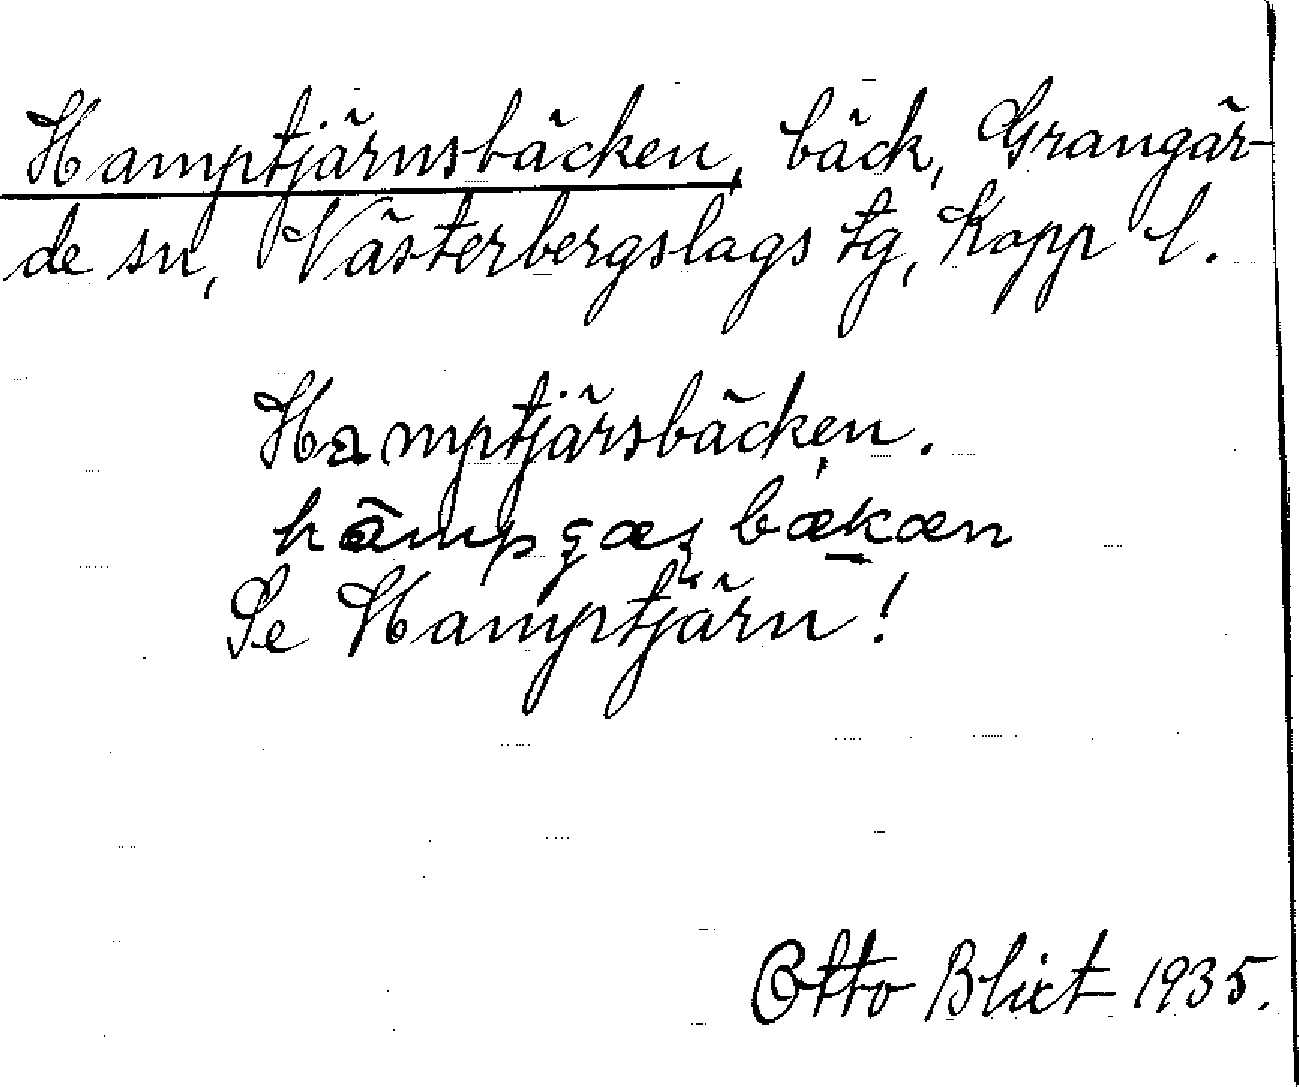 Hamptjärnsbäcken, bäck, Grangär-
de sn, Västerbergslags tg, Kopp l.
Hamptjärsbäcken.
Se Hamptjärn!
Otto Blixt 1935.